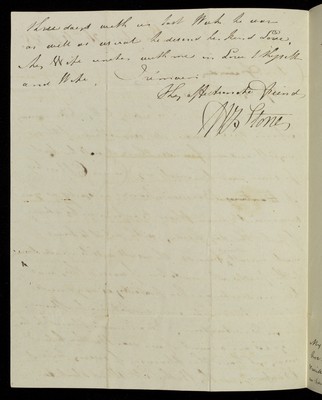 three days with us last Week he was
as well as usual he desired his kind Love,
My Wife unites with me in Love to thyself
and Wife. I remain
Thy affectionate friend
Stone